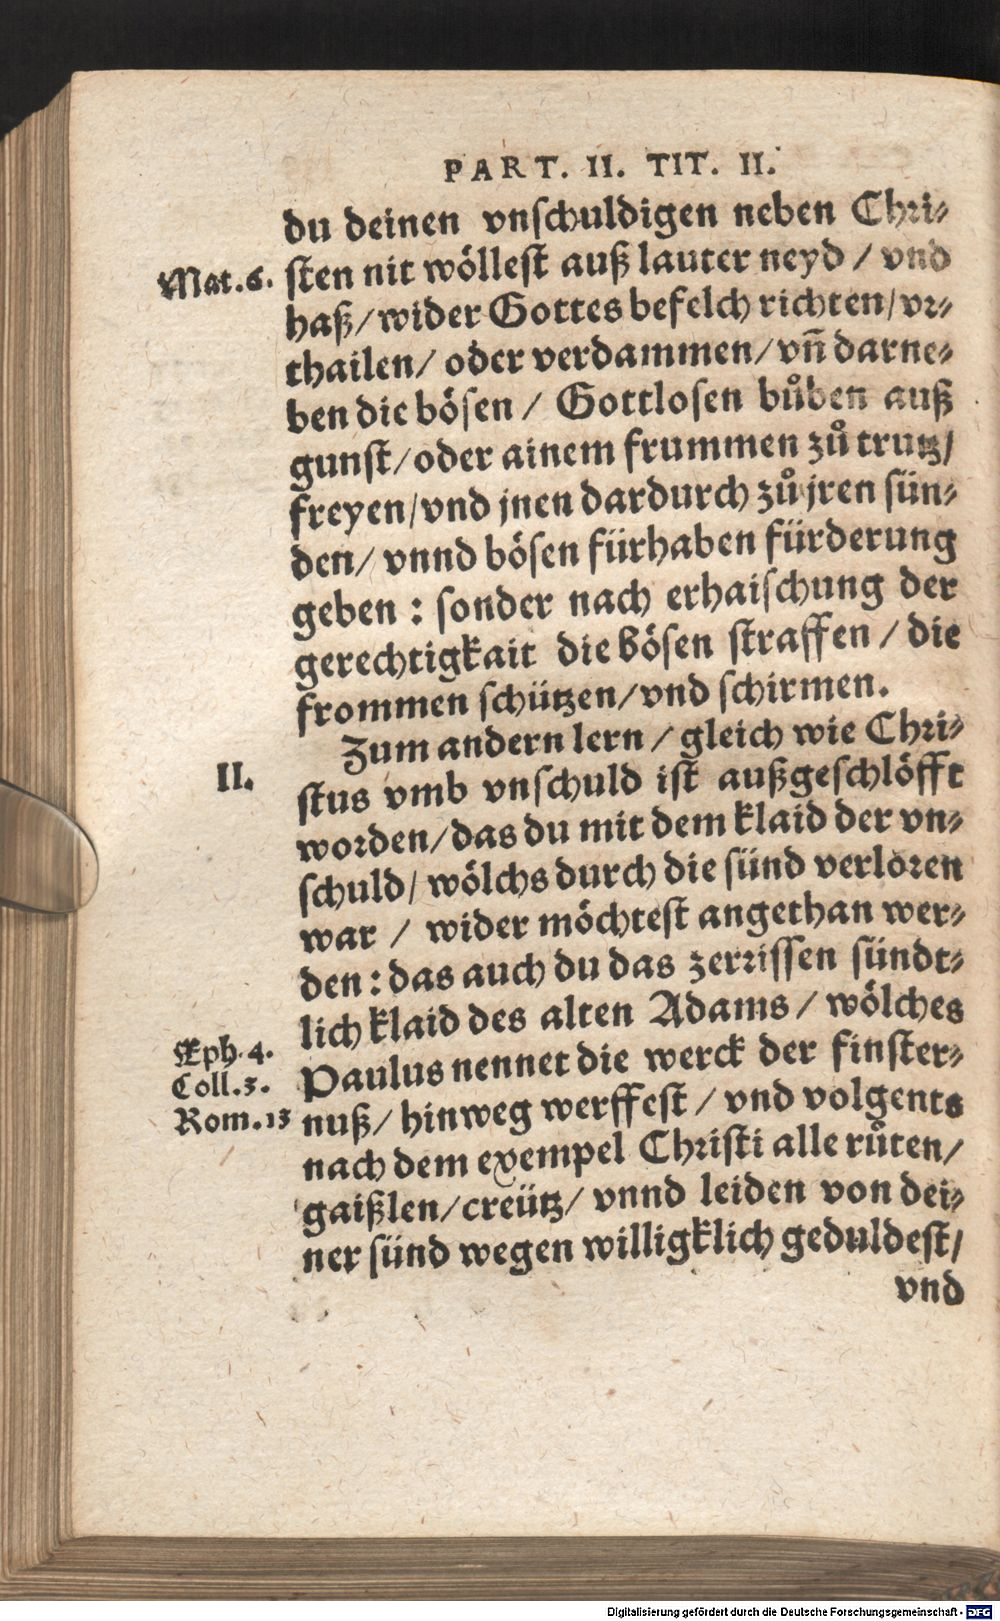 PART. II. TIT. II.
du deinen vnschuldigen neben Chri⸗
Mat.6. sten nit wöllest auß lauter neyd / vnd
haß/wider Gottes befelch richten/vr⸗
thailen/ oder verdammen/vñ darne⸗
ben die bösen / Gottlosen bůben auß
gunst/oder ainem frummen zů trutz/
freyen/vnd jnen dardurch zů jren sün⸗
den/ vnnd bösen fürhaben fürderung
geben : sonder nach erhaischung der
gerechtigkait die bösen straffen / die
frommen schützen/vnd schirmen.
II. Zum andern lern / gleich wie Chri⸗
stus vmb vnschuld ist außgeschlöfft
worden/das du mit dem klaid der vn⸗
schuld/ wölchs durch die sünd verloren
war / wider möchtest angethan wer⸗
den : das auch du das zerrissen sündt⸗
lich klaid des alten Adams / wölches
Eph.4. Paulus nennet die werck der finster⸗
Coll.3. nuß/ hinweg werffest / vnd volgents
Rom.13 nach dem exempel Christi alle růten/
gaißlen/creütz/ vnnd leiden von dei⸗
ner sünd wegen willigklich geduldest/
vnd
Digitalisierung gefördert durch die Deutsche Forschungsgemeinschaft - DFG